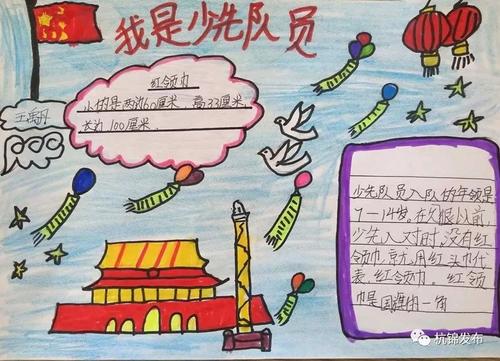 我是少先队员
红领巾
小的是两边60厘米、高33厘米、
长边100厘米.
少先队员入队的年领是
7-14岁.在久很以前,
少先入对时,没有红
领巾,就用红头巾代
表,红领巾。红领
巾是国旗的一角
杭锦发布